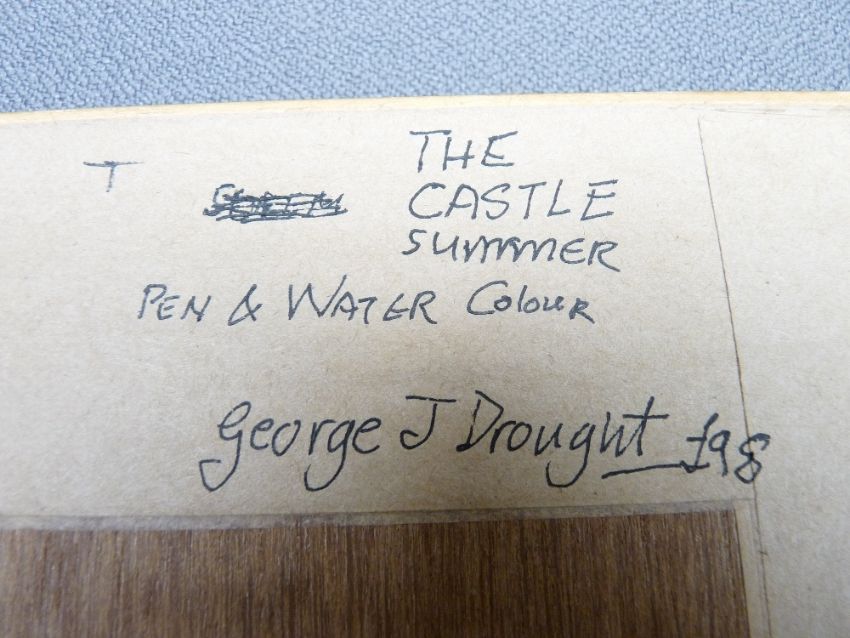 T
THE
CASTLE
SUMMER
PEN & WATER COLOUR
George J Drought £98